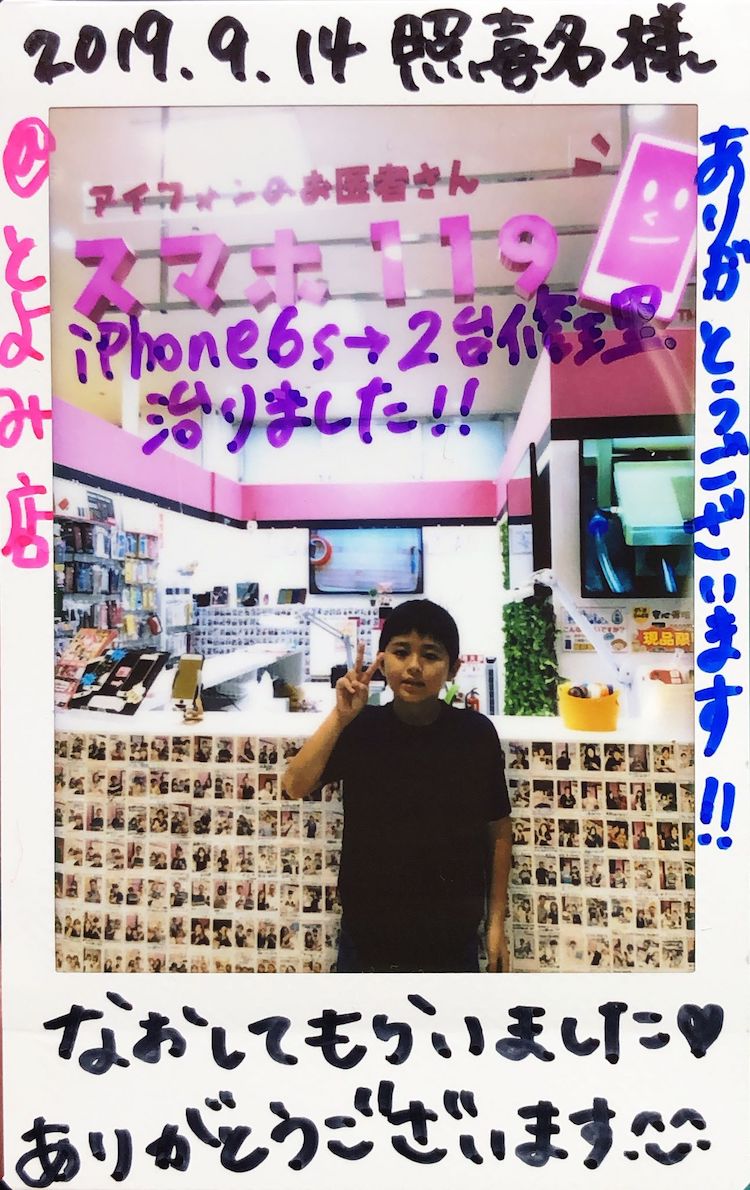 2019.9.14 照喜名様
@とよみ店
ありがとうございます!!
アイフォンのお医者さん
スマホ119
iPhone6s→2台修理。
治りました!!
現品限
なおしてもらいました♥
ありがとうございます